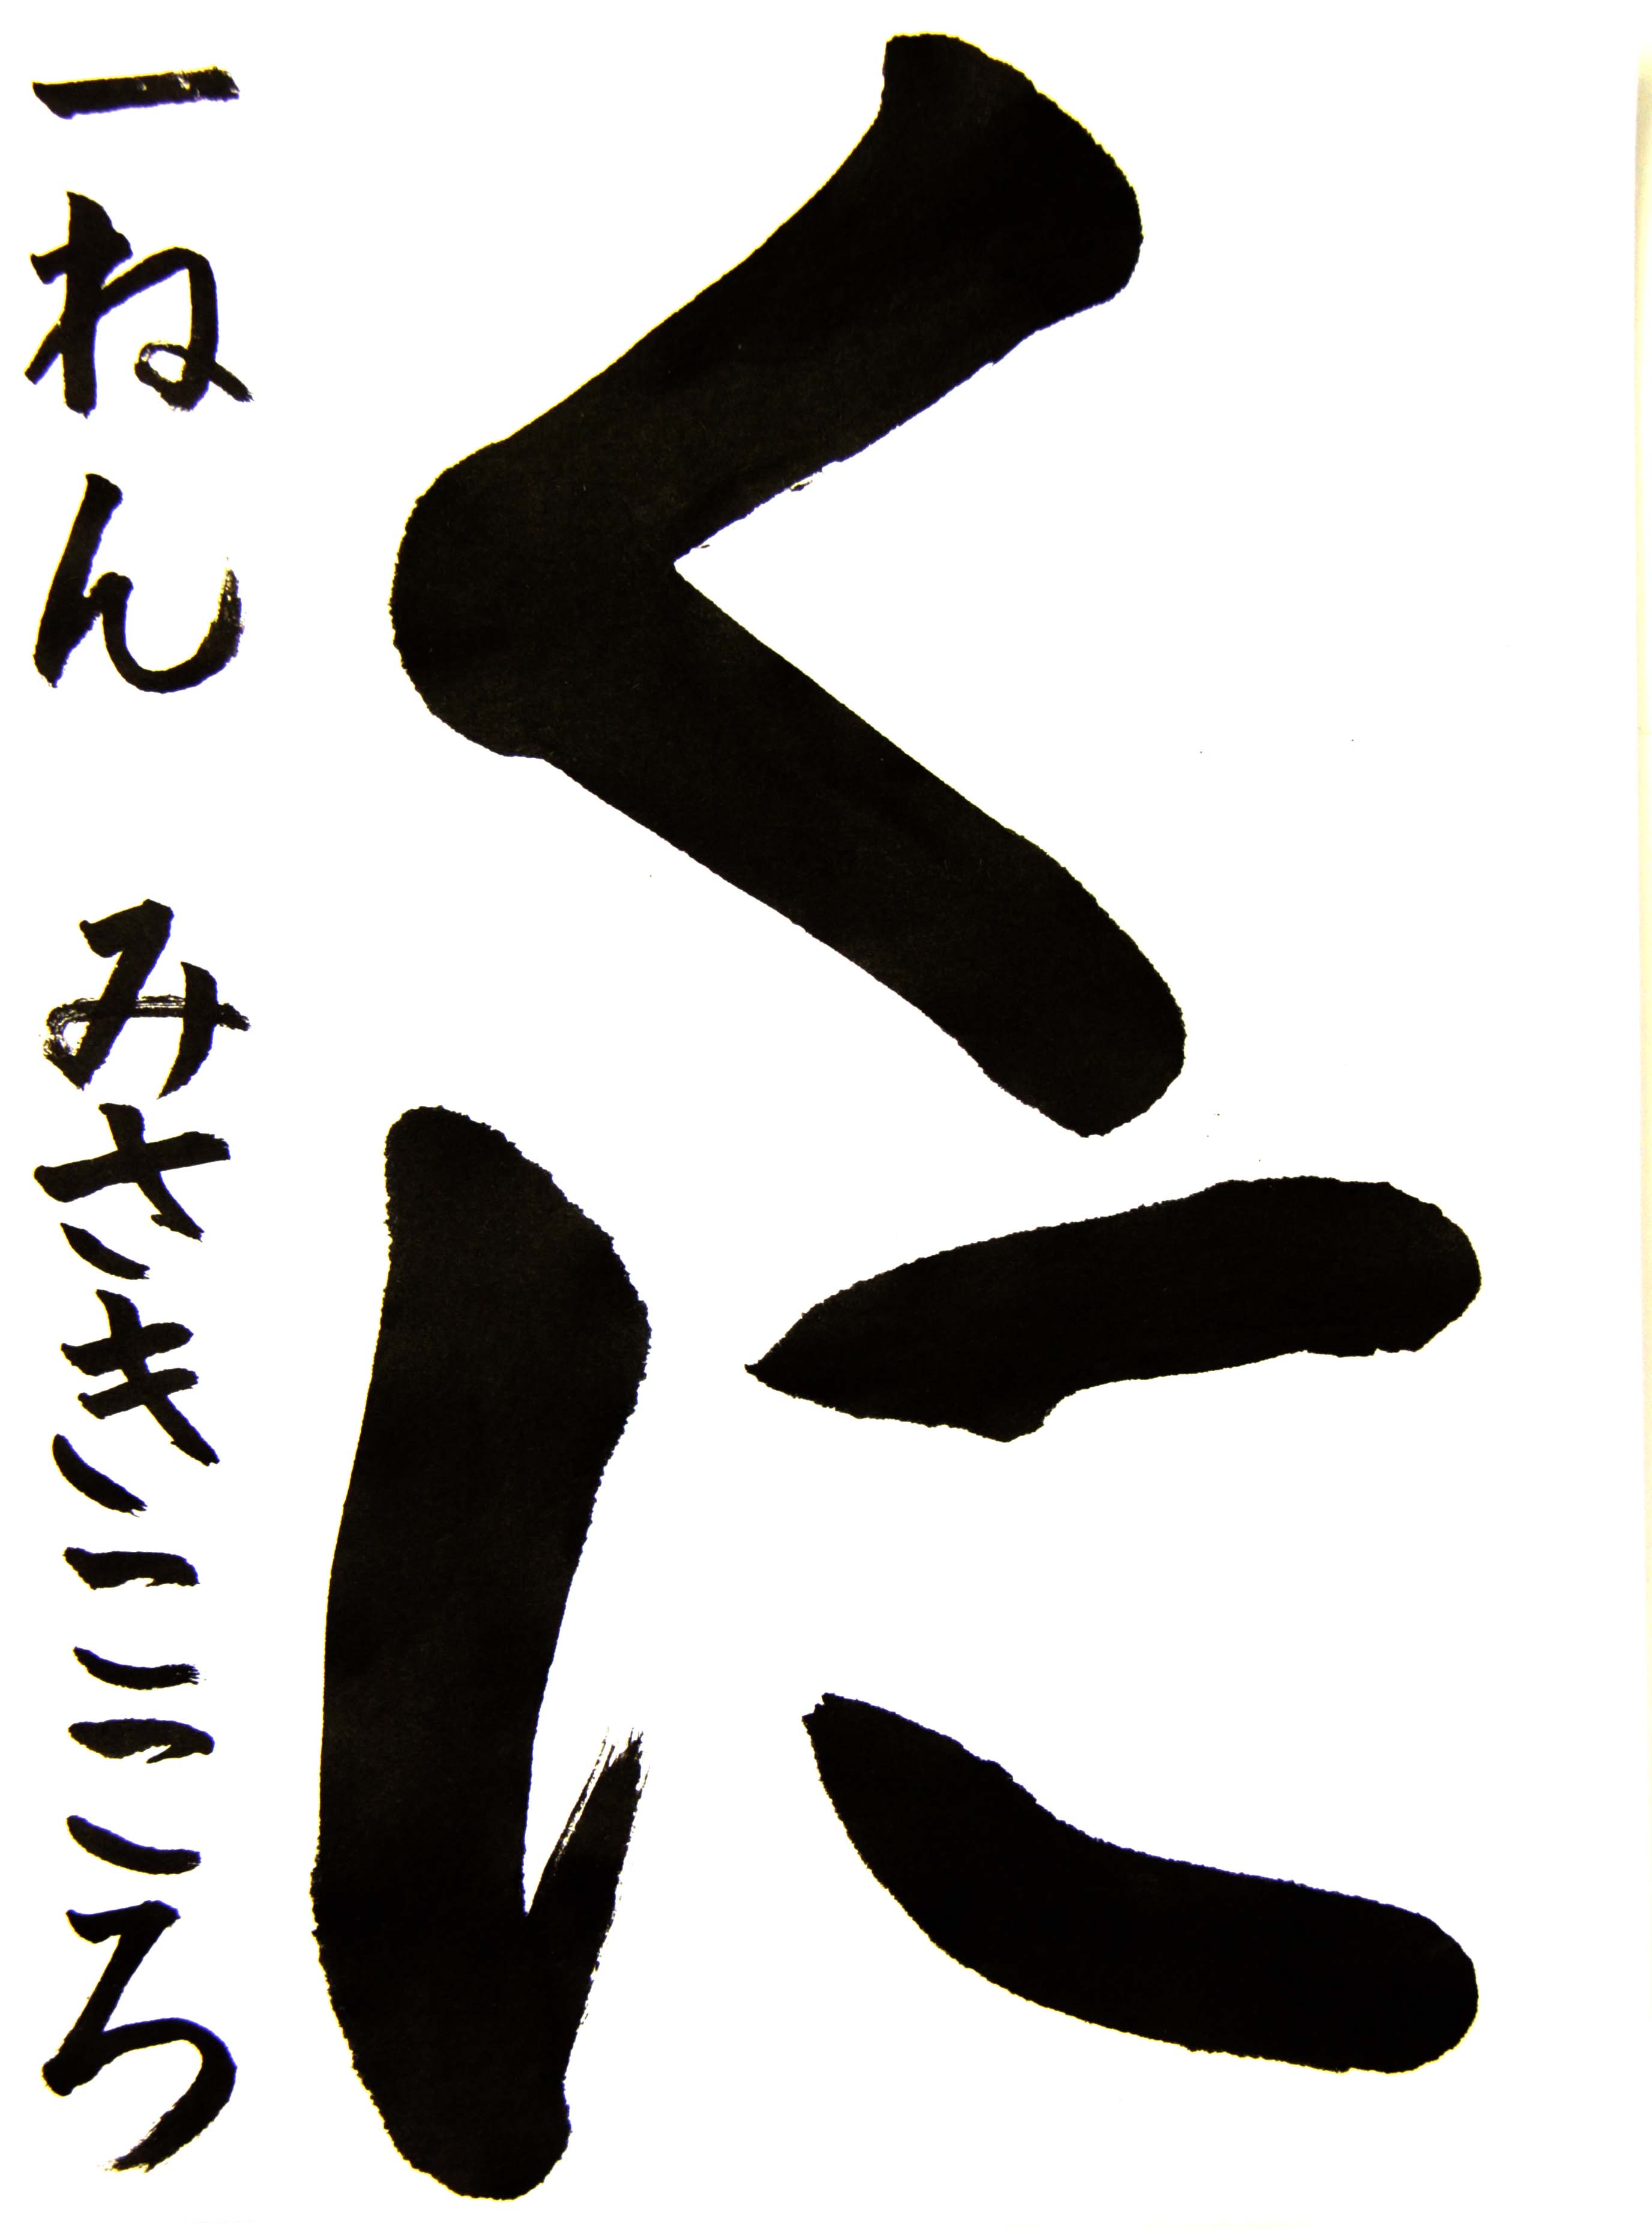 くに
一ねん みさきこころ